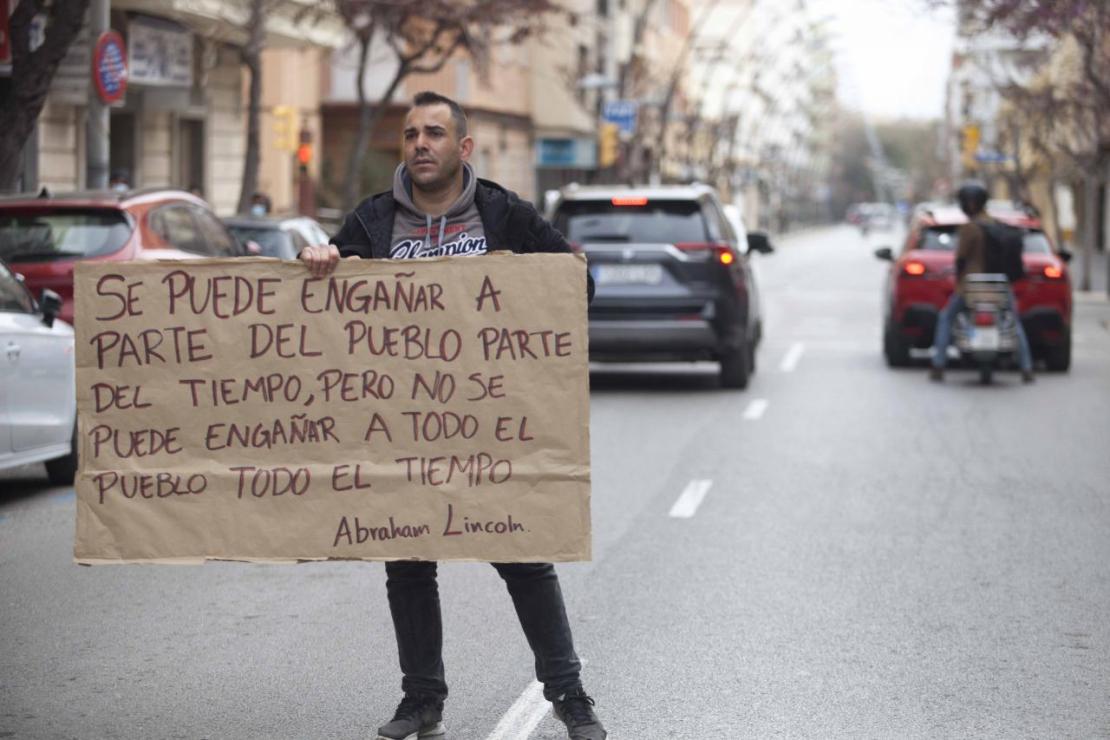 Champion
SE PUEDE ENGAÑAR A
PARTE DEL PUEBLO PARTE
DEL TIEMPO, PERO NO SE
PUEDE ENGAÑAR A TODO EL
PUEBLO TODO EL TIEMPO
Abraham Lincoln.